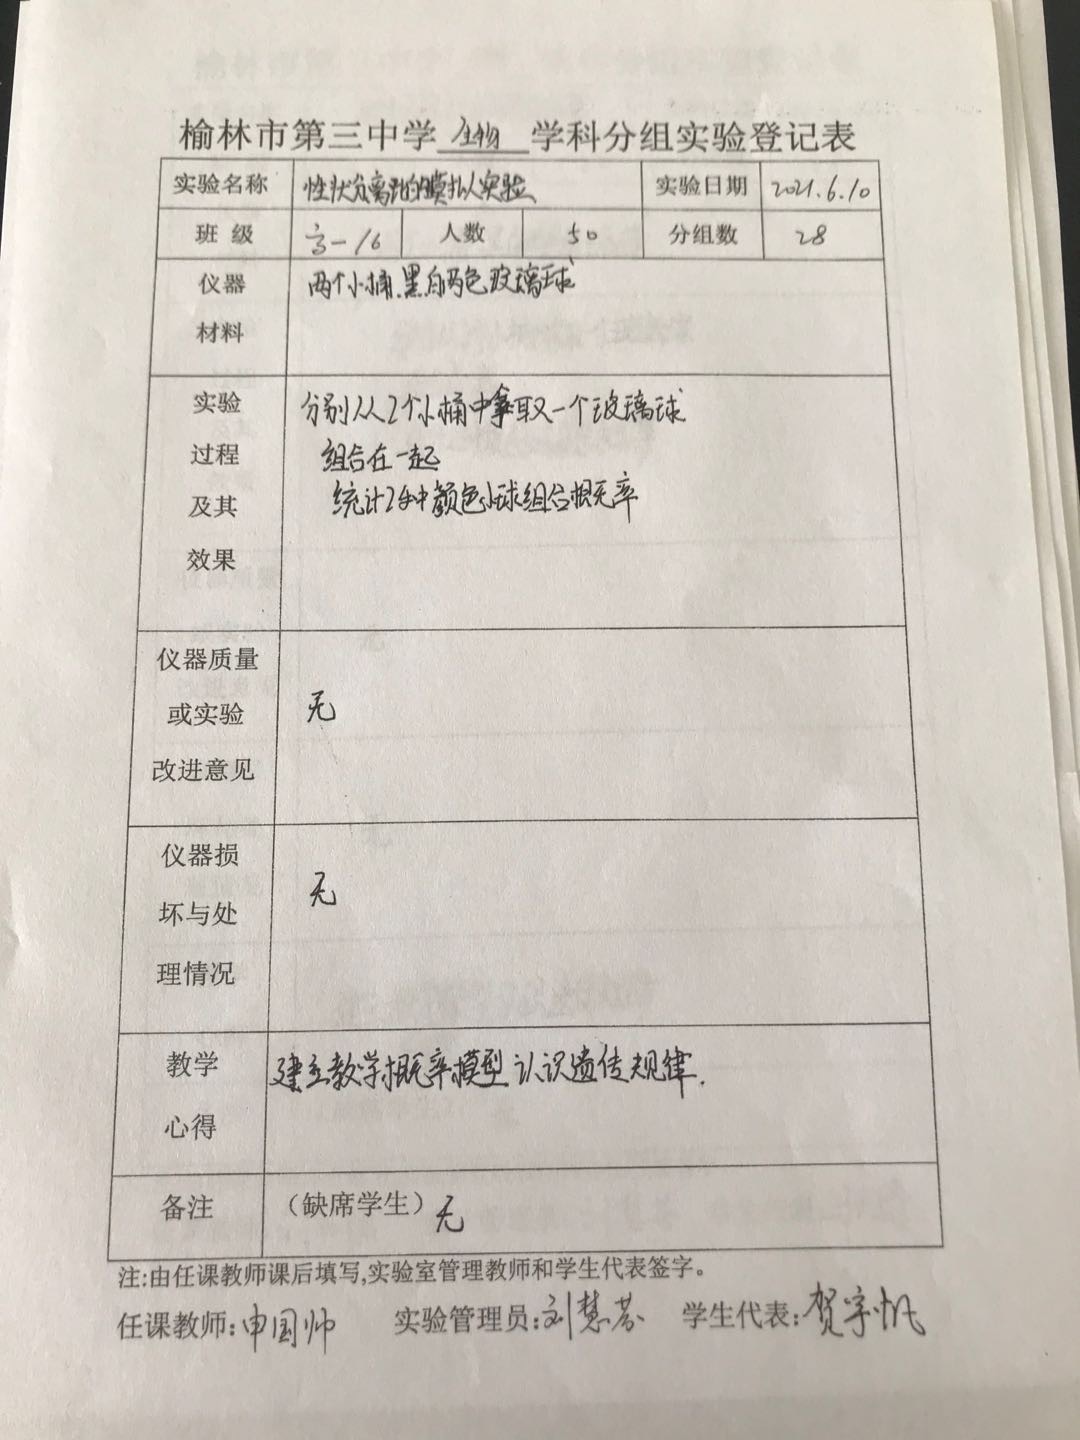 榆林市第三中学 生物 学科分组实验登记表
实验名称 性状分离比的模拟实验 实验日期 2021.6.10
班 级 高一16 人数 50 分组数 28
仪器
材料
两个小桶.黑白两色玻璃球
实验
过程
及其
效果
分别从2个小桶中拿取一个玻璃球
组合在一起
统计2种颜色小球组合概率
仪器质量
或实验
改进意见
无
仪器损
坏与处
理情况
无
教学
心得
建立数学概率模型认识遗传规律.
备注 (缺席学生)无
注:由任课教师课后填写,实验室管理教师和学生代表签字。
任课教师:申国帅 实验管理员:刘慧芬 学生代表:贺宇帆